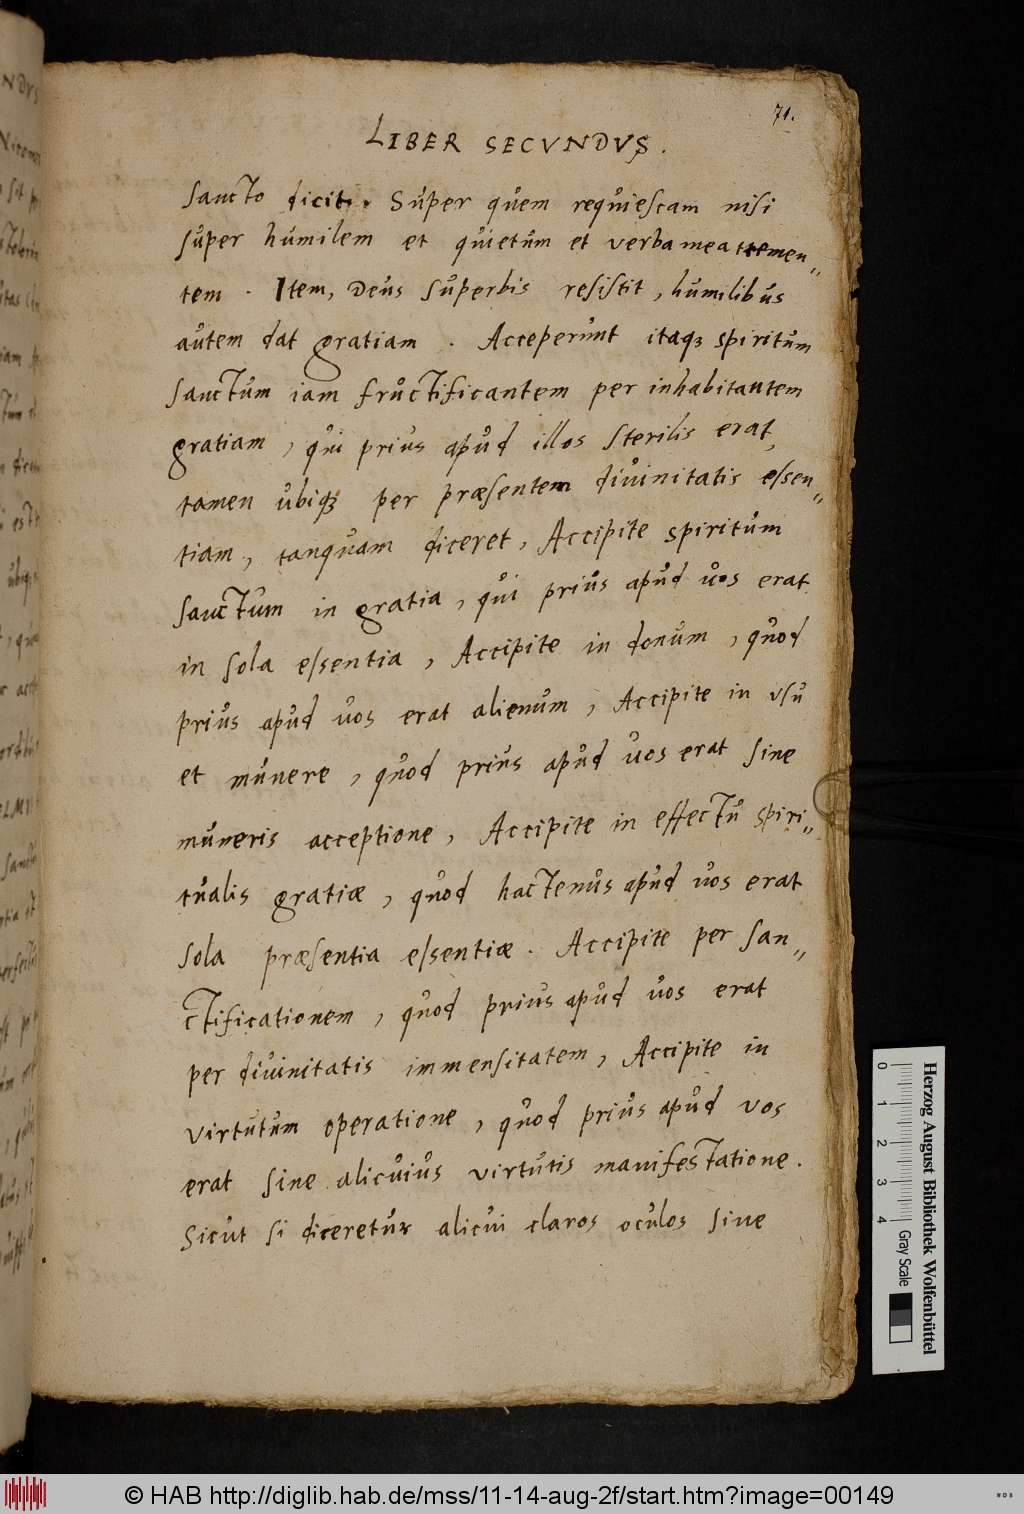 71.
LIBER SECVNDVS.
sancto dicit. Super quem requiescam nisi
super humilem et quietum et verba mea tremen„
tem. Item, Deus superbis resistit, humilibus
autem dat gratiam. Acceperunt itaqꝫ spiritum
sanctum iam fructificantem per inhabitantem
gratiam, qui prius apud illos sterilis erat,
tamen ubiqꝫ per præsentem diuinitatis essen„
tiam, tanquam diceret, Accipite spiritum
sanctum in gratia, qui prius apud uos erat
in sola essentia, Accipite in donum, quod
prius apud uos erat alienum, Accipite in vsu
et munere, quod prius apud uos erat sine
muneris acceptione, Accipite in effectu spiri„
tualis gratiæ, quod hactenus apud uos erat
sola præsentia essentiæ. Accipite per san„
ctificationem, quod prius apud uos erat
per diuinitatis immensitatem, Accipite in
virtutum operatione, quod prius apud vos
erat sine alicuius virtutis manifestatione.
Sicut si diceretur alicui claros oculos siue
0 1 2 3 4
Gray Scale
Herzog August Bibliothek Wolfenbüttel
© HAB http://diglib.hab.de/mss/11-14-aug-2f/start.htm?image=00149